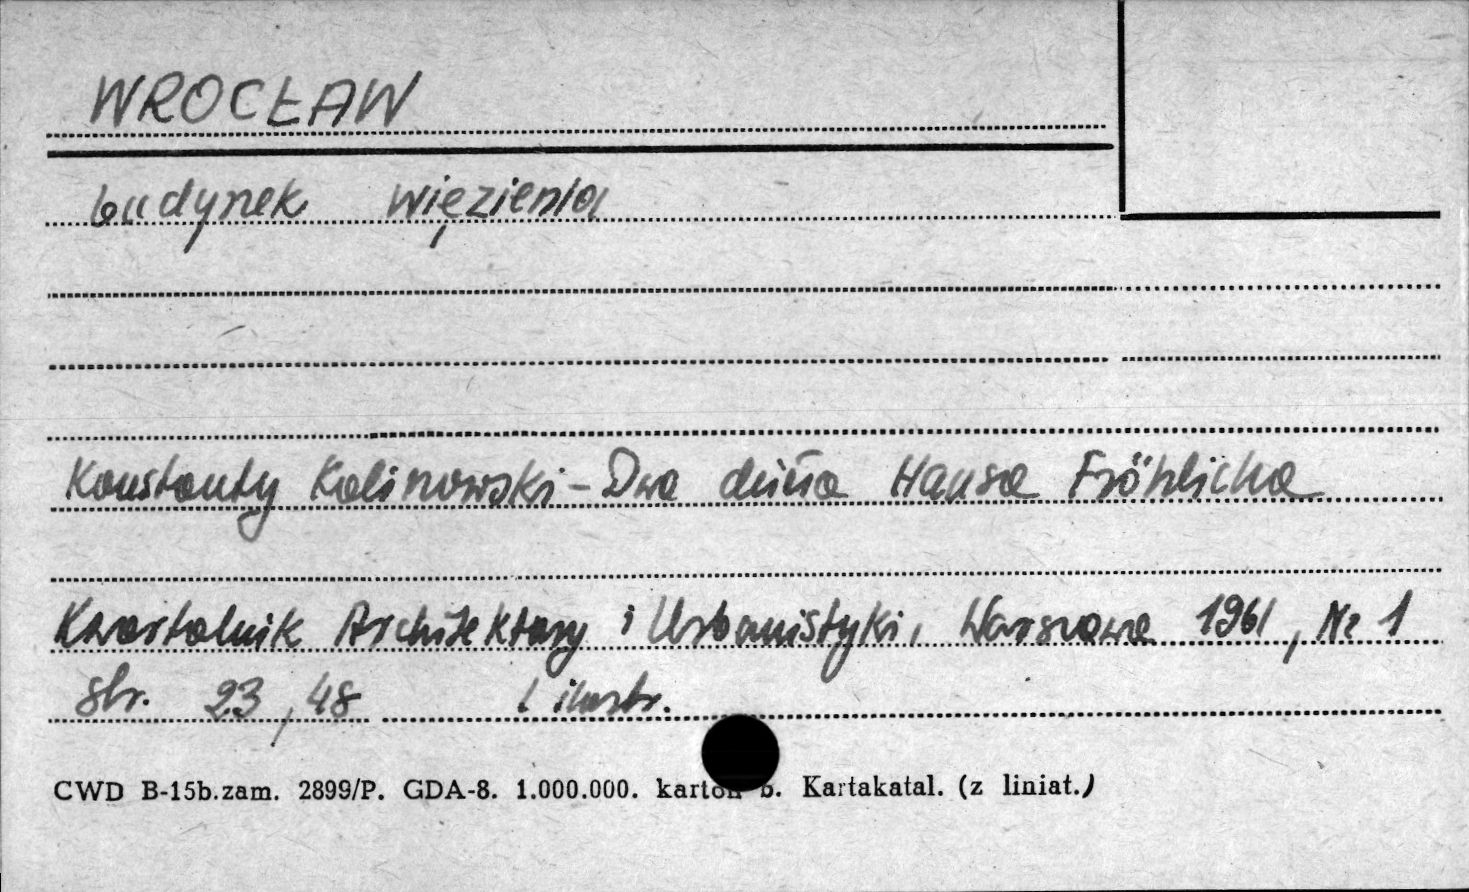 WROCŁAW
budynek więzienia
Konstanty Kalinowski - Dwa Hansa Fröhlicha
Kwartalnik Architektury i Urbanistyki, Warszawa 1961, Nr 1
str. 23, 48 1 ilustr.
CWD B-15b.zam. 2899/P. GDA-8. 1.000.000. karton b. Kartakatal. (z liniat.)